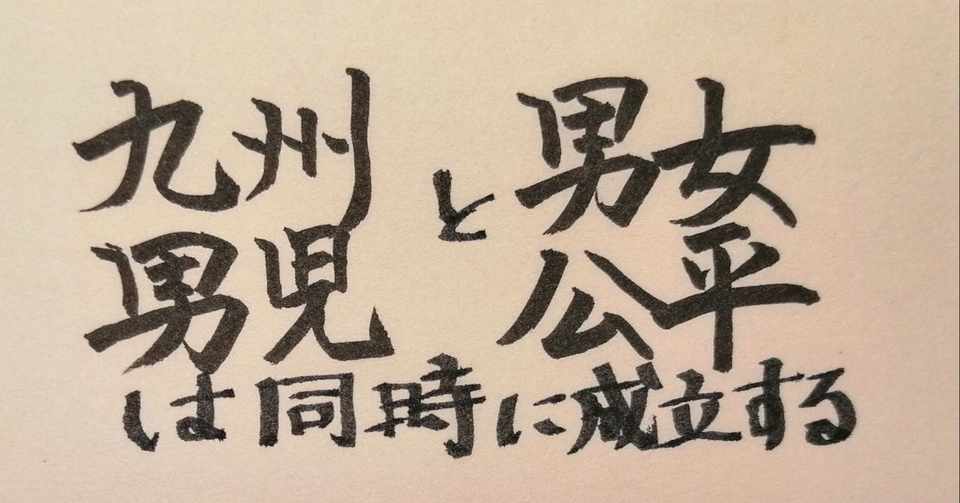 九州男児と男女公平
は同時に成立する